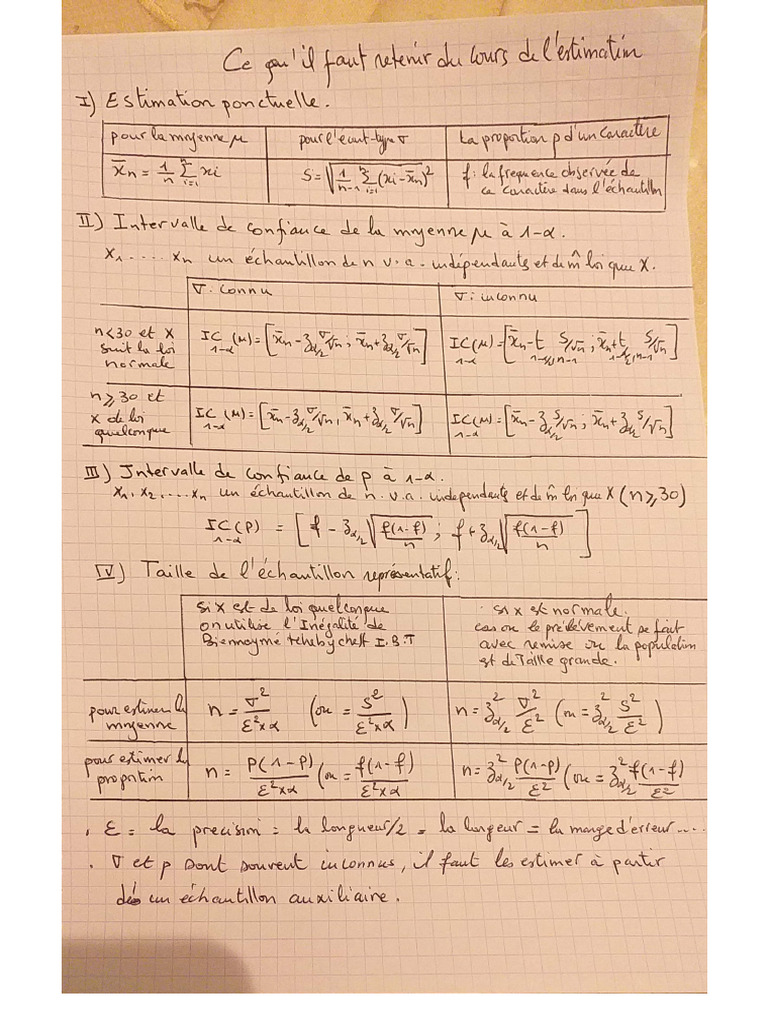 Ce qu'il faut retenir du cours de l'estimation
I) Estimation ponctuelle.
pour la moyenne μ | pour l'écart-type σ | La proportion p d'un caractère
x̄n = 1/n Σ(i=1..n) xi | S = √(1/(n-1) Σ(i=1..n) (xi - x̄n)²) | f: la frequence observée de
ce caractère dans l'échantillon
II) Intervalle de confiance de la moyenne μ à 1-α.
X1.....Xn un échantillon de n v.a. indépendants et de m̂ loi que X.
σ: connu | σ: inconnu
n<30 et X
suit la loi
normale | IC(μ)1-α = [x̄n - z_α/2 σ/√n ; x̄n + z_α/2 σ/√n] | IC(μ)1-α = [x̄n - t_1-α/2,n-1 S/√n ; x̄n + t_1-α/2,n-1 S/√n]
n⩾30 et
X de loi
quelconque | IC(μ)1-α = [x̄n - z_α/2 σ/√n, x̄n + z_α/2 σ/√n] | IC(μ)1-α = [x̄n - z_α/2 S/√n ; x̄n + z_α/2 S/√n]
III) Intervalle de confiance de p à 1-α.
X1, X2, ....Xn un échantillon de n.v.a. independants et de m̂ loi que X (n⩾30)
IC(P)1-α = [f - z_α/2 √(f(1-f)/n) ; f + z_α/2 √(f(1-f)/n)]
IV) Taille de l'échantillon représentatif:
si X est de loi quelconque
on utilise l'Inégalité de
Biennaymé tchebycheff I.B.T | si X est normale.
cas ou le prélèvement se fait
avec remise ou la population
est de Taille grande.
pour estimer la
moyenne | n = σ²/(ε²×α) (ou = S²/(ε²×α)) | n = z²_α/2 σ²/ε² (ou = z²_α/2 S²/ε²)
pour estimer la
proportion | n = P(1-P)/(ε²×α) (ou = f(1-f)/(ε²×α)) | n = z²_α/2 P(1-p)/ε² (ou = z²_α/2 f(1-f)/ε²)
. ε = la precision = la longueur/2 = la largeur = la marge d'erreur.....
. σ et p sont souvent inconnus, il faut les estimer à partir
un échantillon auxiliaire.